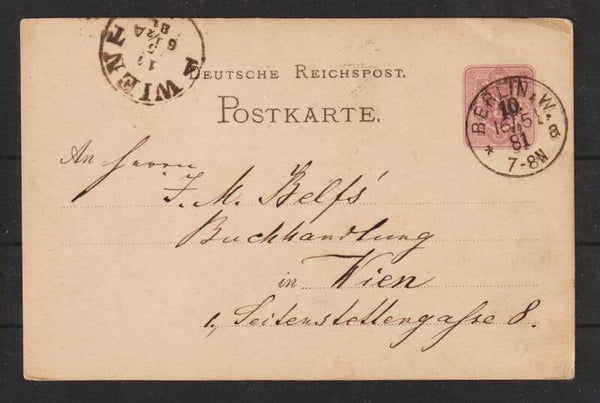 WIEN 1
DEUTSCHE REICHSPOST.
POSTKARTE.
BERLIN, W.
81
7-8N
An Herrn
J. M.
Buchhandlung
in Wien
1, Seitenstettengasse 8.